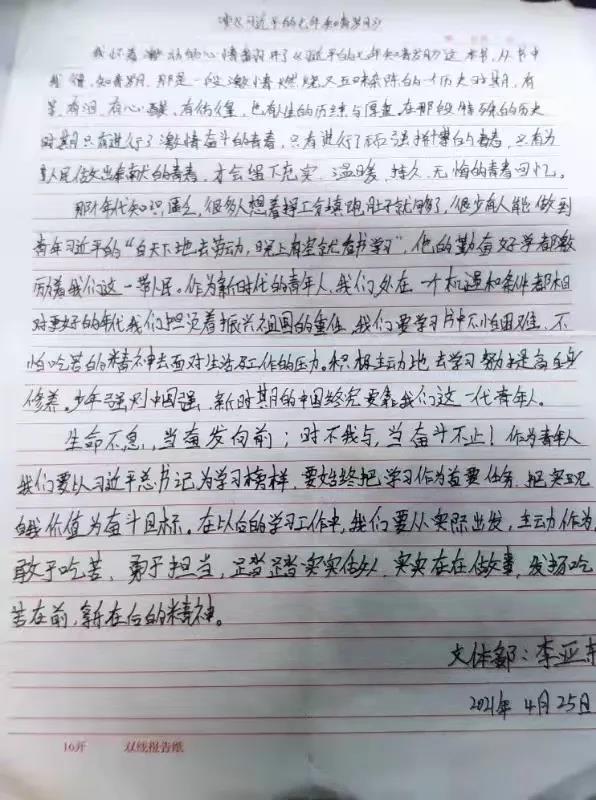 《习近平的七年知青岁月》
我怀着激动的心情翻开了《习近平的七年知青岁月》这本书，从书中
我懂，知青岁月，那是一段激情燃烧又五味杂陈的历史时期，有
笑，有泪，有心酸，有彷徨，也有人生的历练与厚盘。在那段特殊的历史
时期只有进行了激情奋斗的青春，只有进行了顽强拼搏的青春，只有为
人民做出奉献的青春，才会留下充实、温暖、持久、无悔的青春回忆。
那个年代知识匮乏，很多人想着挣工分填饱肚子就够了，很少有人能做到
青年习近平的“白天下地去劳动，晚上有空就看书学习”，他的勤奋好学都激
励着我们这一带人民。作为新时代的青年人，我们处在一个机遇和条件都相
对更好的年代我们担负着振兴祖国的重任，我们要学习书中不怕困难、不
怕吃苦的精神去面对生活及工作的压力。积极主动地去学习努力提高自身
修养。少年强则中国强，新时期的中国终究要靠我们这一代青年人。
生命不息，当奋发向前；时不我与，当奋斗不止！作为青年人
我们要以习近平总书记为学习榜样，要始终把学习作为首要任务，把实现
自我价值为奋斗目标。在以后的学习工作中，我们要从实际出发，主动作为，
敢于吃苦、勇于担当，踏踏实实做人，实实在在做事，发扬吃
苦在前，享在后的精神。
文体部：李亚东
2021年4月25日
16开 双线报告纸